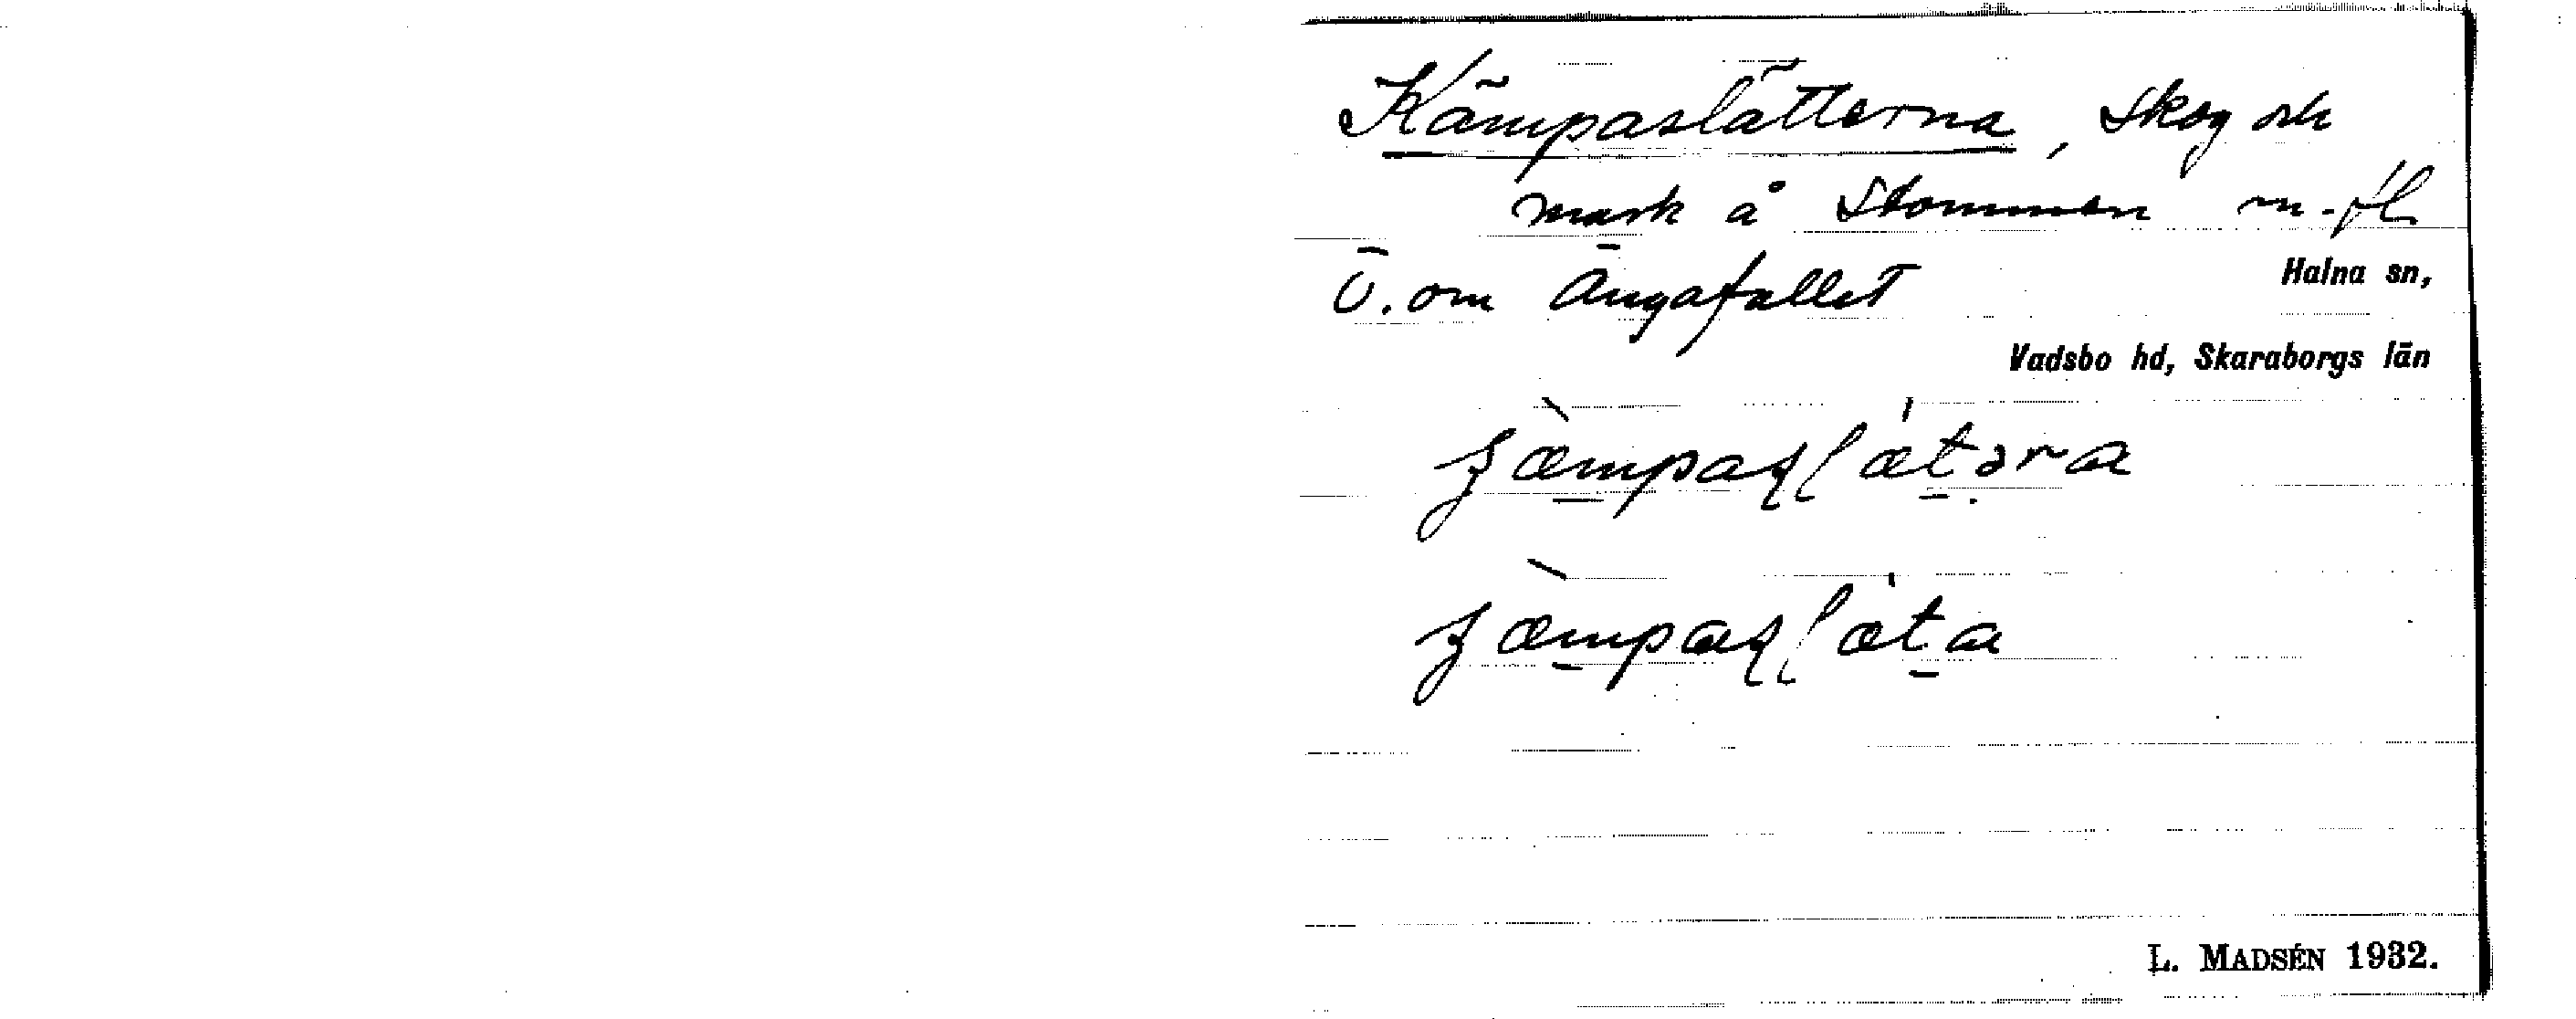 Kämpaslätterna, skog och
mark å Stommen m.fl.
Ö. om Ängafallet
Halna sn,
Vadsbo hd, Skaraborgs län
L. MADSÉN 1932.